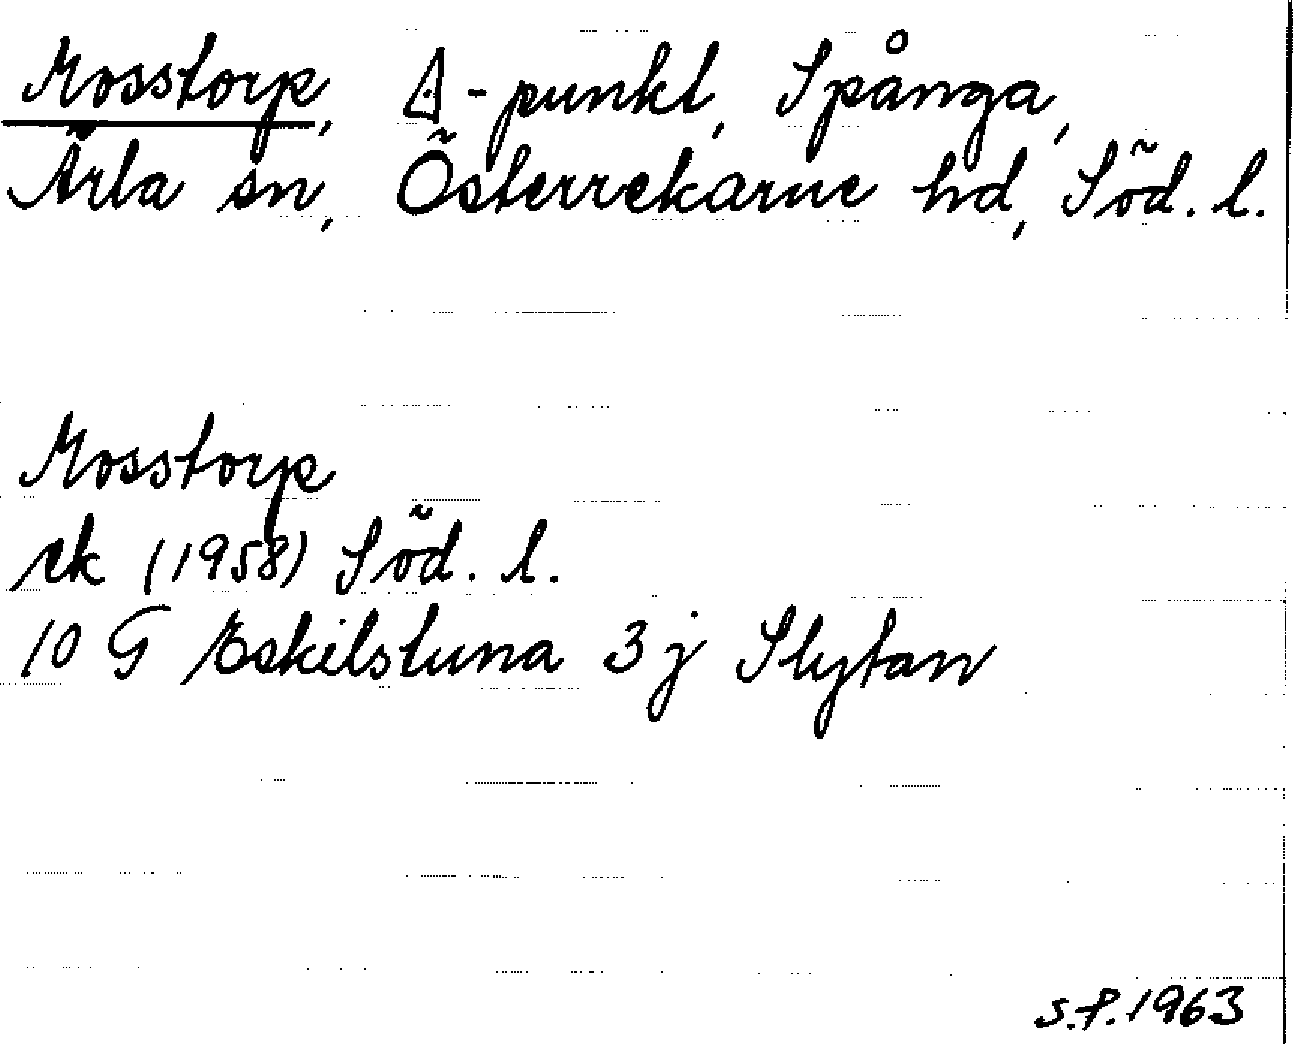 Mosstorp, △-punkt, Spånga,
Ärla sn, Österrekarne hd, Söd. l.
Mosstorp
ek (1958) Söd. l.
10 G Eskilstuna 3 j Slytan
S.P. 1963